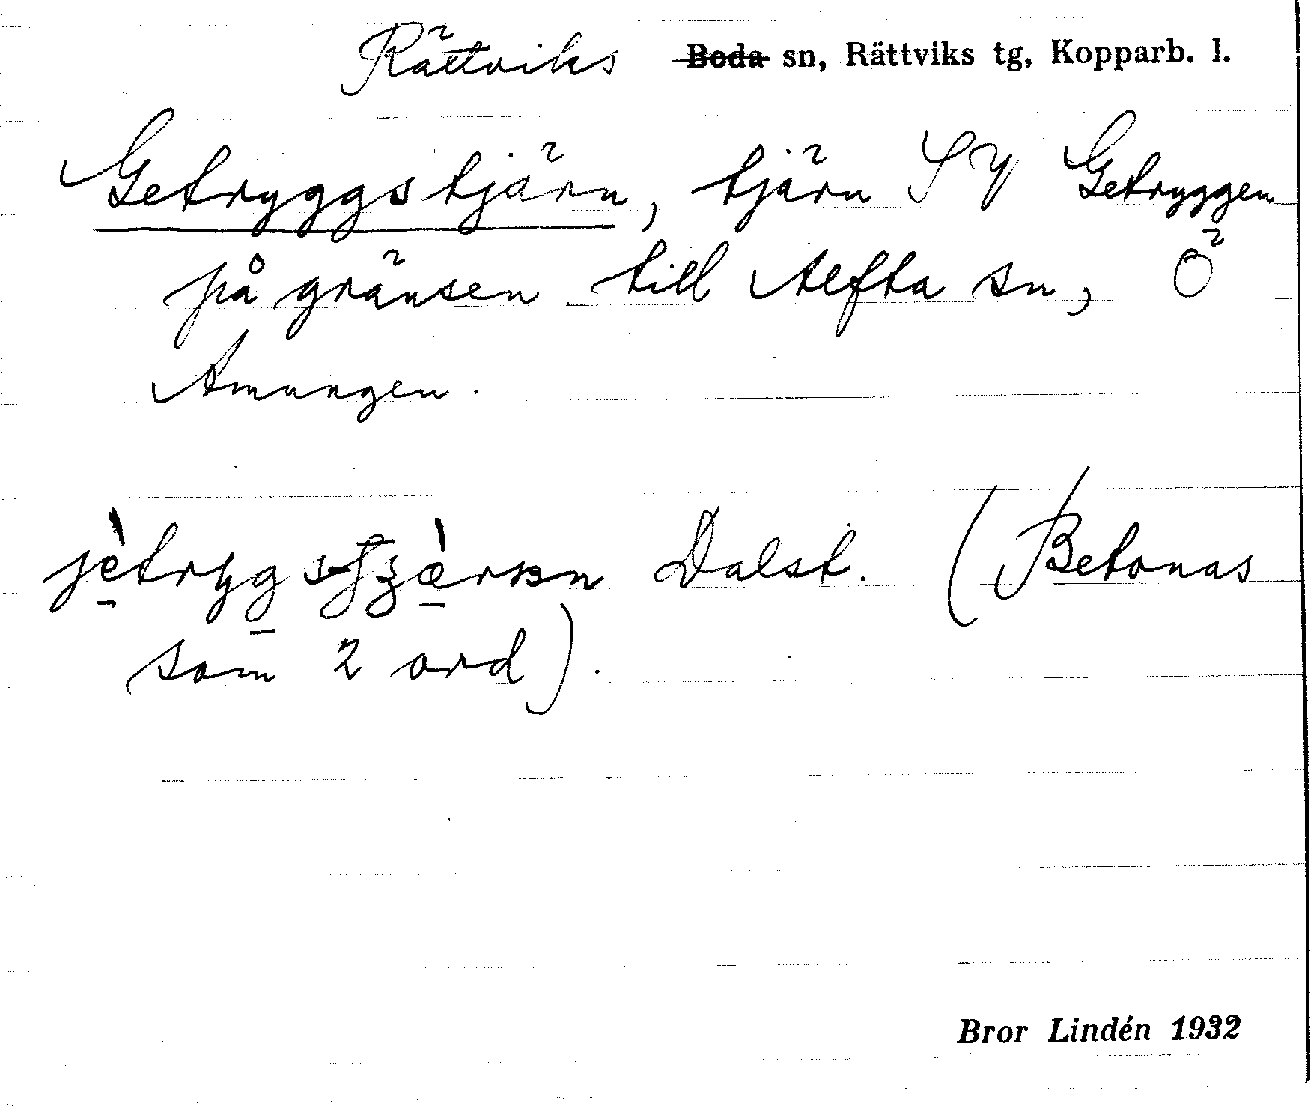 Rättviks Boda sn, Rättviks tg, Kopparb. l.
Getryggstjärn, tjärn SV Getryggen
på gränsen till Alfta sn, Ö
Amungen.
Dalst. (Betonas
som 2 ord).
Bror Lindén 1932